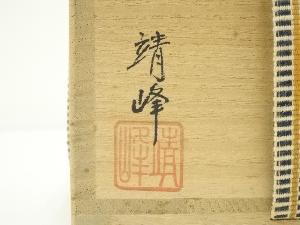 靖峰
靖峰